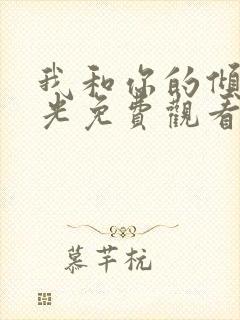 我和你的傾
光免費觀看
慕芊杭